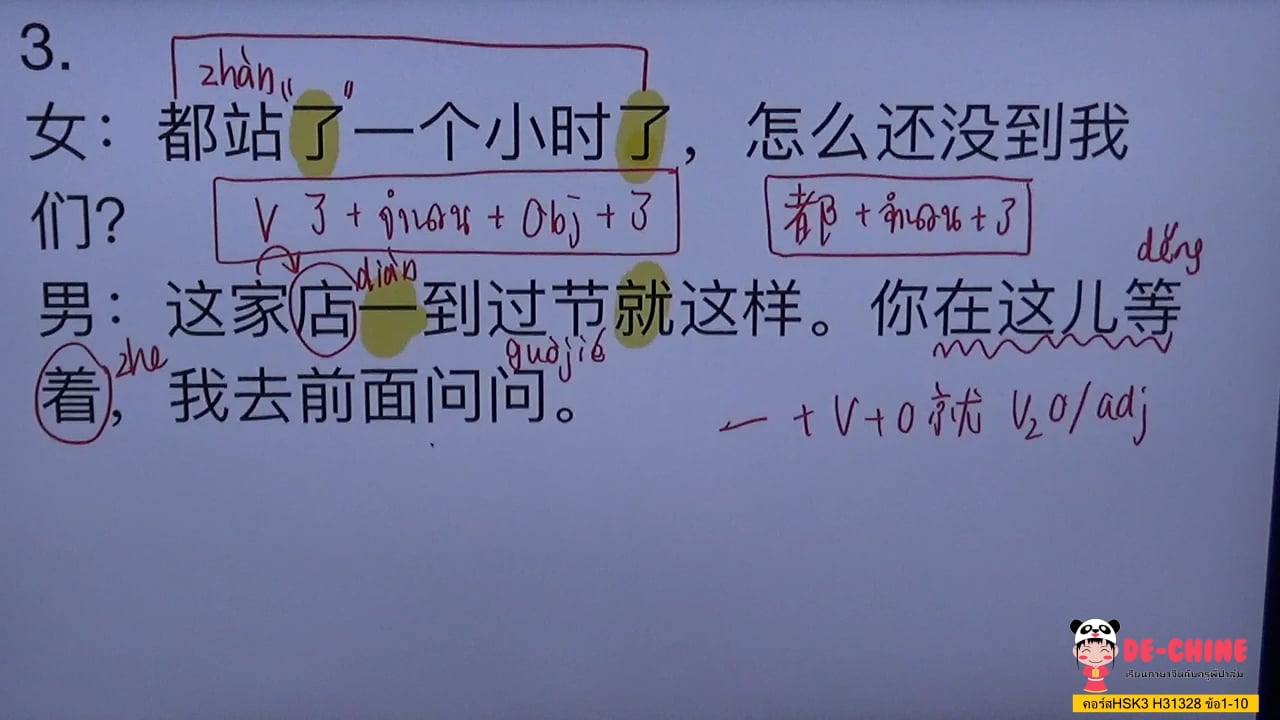 3.
zhàn "   "
女：都站了一个小时了，怎么还没到我
们？
V 了 + จำนวน + Obj + 了
都 + จำนวน + 了
děng
diàn
男：这家店一到过节就这样。你在这儿等
zhe
guòjié
着，我去前面问问。
一 + V + O 就 V₂ O/adj
DE-CHINE
เรียนภาษาจีนกับครูพี่ป่าล์ม
คอร์สHSK3 H31328 ข้อ1-10